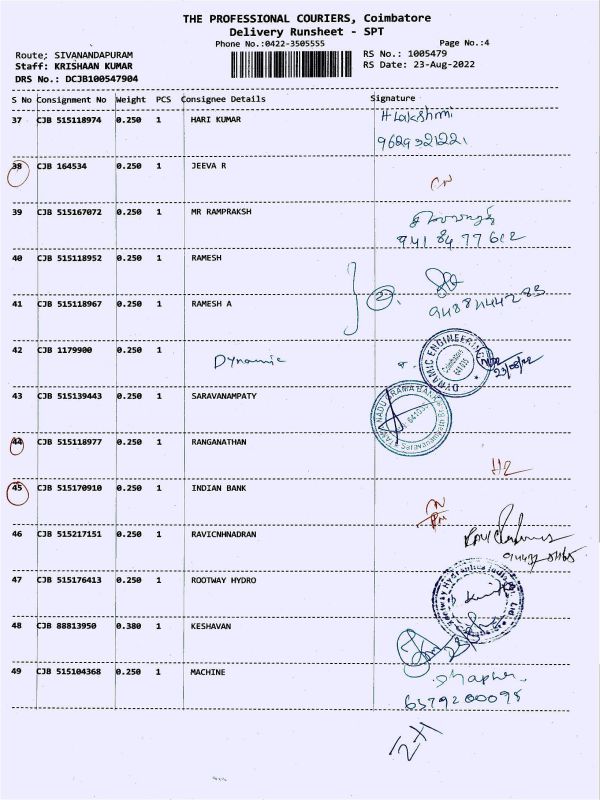 THE PROFESSIONAL COURIERS, Coimbatore
Delivery Runsheet - SPT
Phone No.:0422-3505555 Page No.:4
Route; SIVANANDAPURAM RS No.: 1005479
Staff: KRISHAAN KUMAR RS Date: 23-Aug-2022
DRS No.: DCJB100547904
S No Consignment No Weight PCS Consignee Details Signature
37 CJB 515118974 0.250 1 HARI KUMAR H Lakshmi
9629321221
38 CJB 164534 0.250 1 JEEVA R
39 CJB 515167072 0.250 1 MR RAMPRAKSH
9418477612
40 CJB 515118952 0.250 1 RAMESH
2
41 CJB 515118967 0.250 1 RAMESH A
42 CJB 1179900 0.250 1 Dynamic
DYNAMIC ENGINEERING
Coimbatore
641 035
23/08/22
43 CJB 515139443 0.250 1 SARAVANAMPATY
44 CJB 515118977 0.250 1 RANGANATHAN
45 CJB 515170910 0.250 1 INDIAN BANK
46 CJB 515217151 0.250 1 RAVICNHNADRAN
47 CJB 515176413 0.250 1 ROOTWAY HYDRO
48 CJB 88813950 0.380 1 KESHAVAN
49 CJB 515104368 0.250 1 MACHINE
6379200095